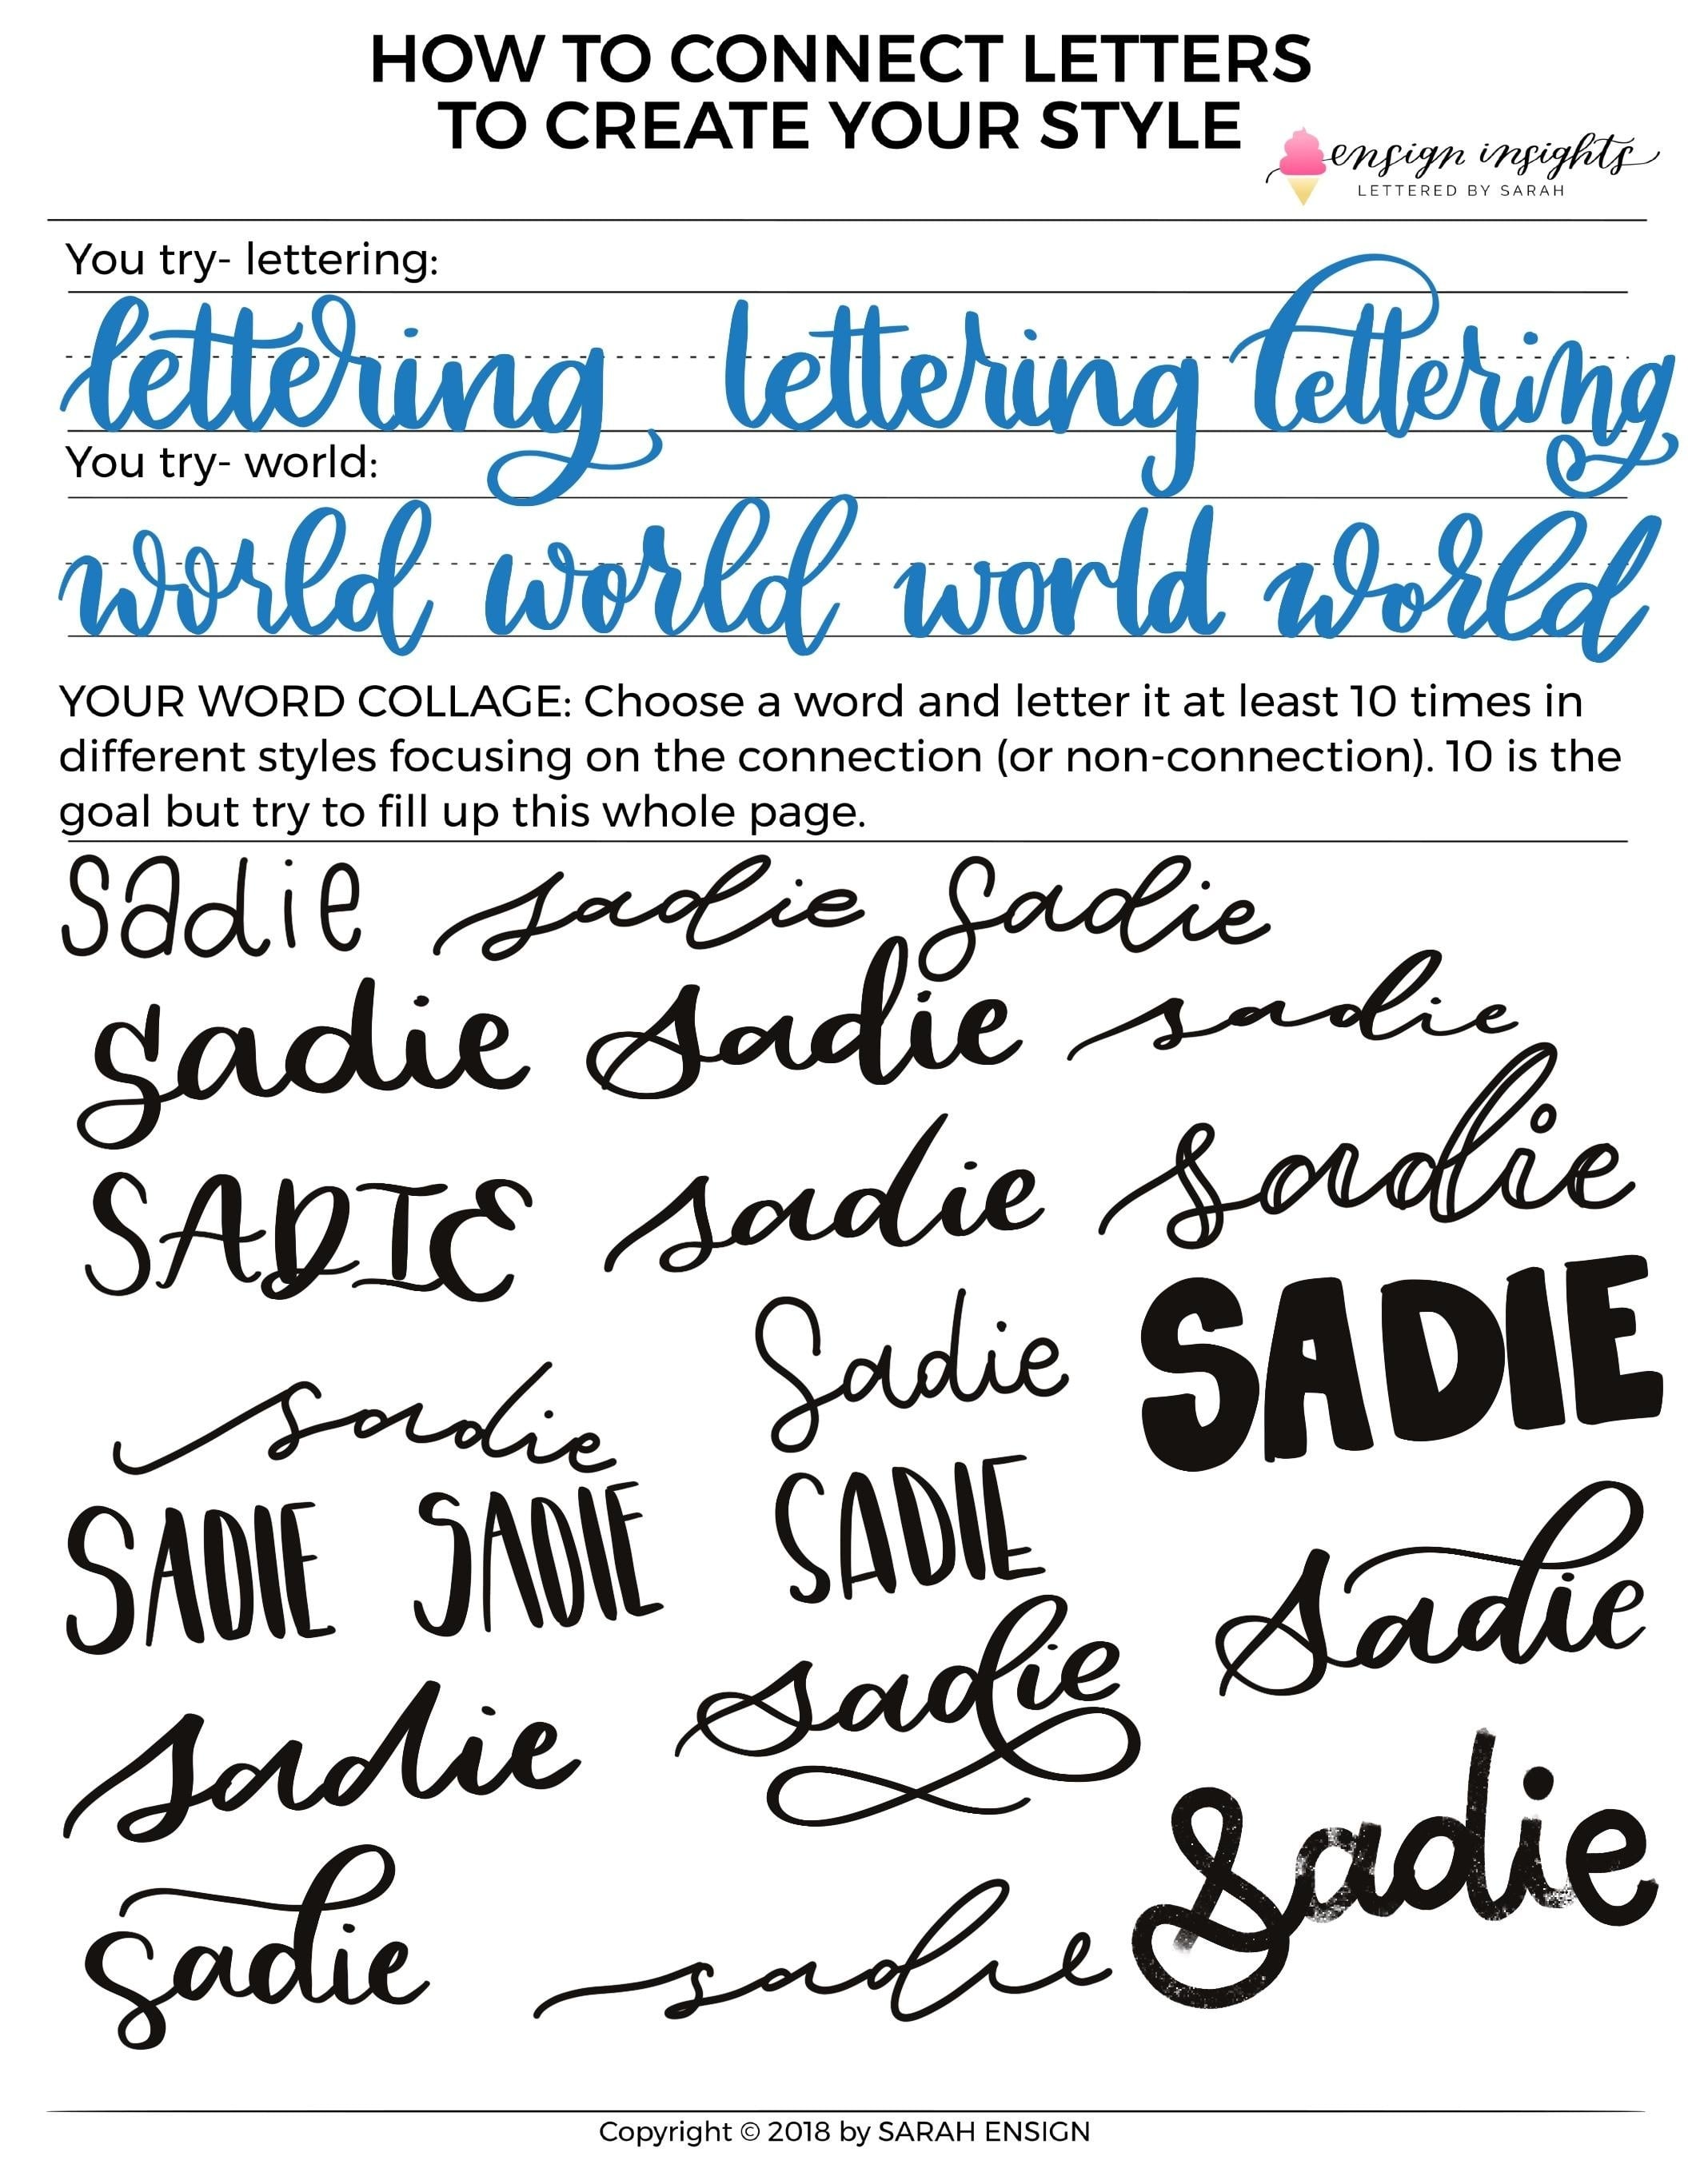 HOW TO CONNECT LETTERS
TO CREATE YOUR STYLE
ensign insights
LETTERED BY SARAH
You try- lettering:
lettering lettering lettering
You try- world:
world world world world
YOUR WORD COLLAGE: Choose a word and letter it at least 10 times in
different styles focusing on the connection (or non-connection). 10 is the
goal but try to fill up this whole page.
sadie sadie Sadie
sadie sadie sadie
SADIE sadie sadie
sadie Sadie SADIE
SADIE SADIE SADIE sadie
sadie sadie Sadie
sadie sadie
Copyright © 2018 by SARAH ENSIGN